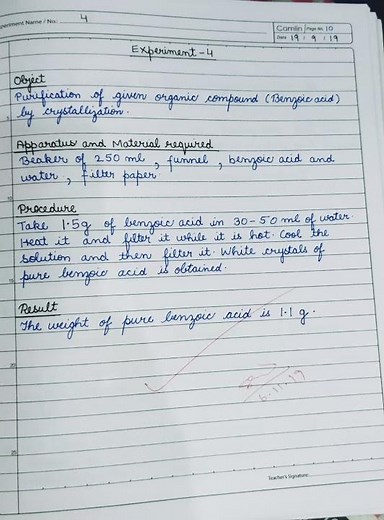 Experiment Name / No.: 4
Camlin Page No. 10
Date 19 / 9 / 19
Experiment-4
Object
Purification of given organic compound (Benzoic acid)
by crystallization.
Apparatus and Material required
Beaker of 250 ml, funnel, benzoic acid and
water, filter paper.
Procedure
Take 1.5g of benzoic acid in 30-50 ml of water.
Heat it and filter it while it is hot. Cool the
solution and then filter it. White crystals of
pure benzoic acid is obtained.
Result
The weight of pure benzoic acid is 1.1 g.
6.11.19
Teacher's Signature: